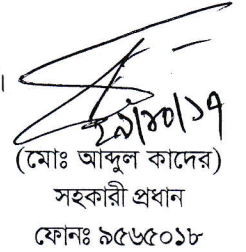 ২৯/১০/১৭
(মোঃ আব্দুল কাদের)
সহকারী প্রধান
ফোনঃ ৯৫৬৫০১৮